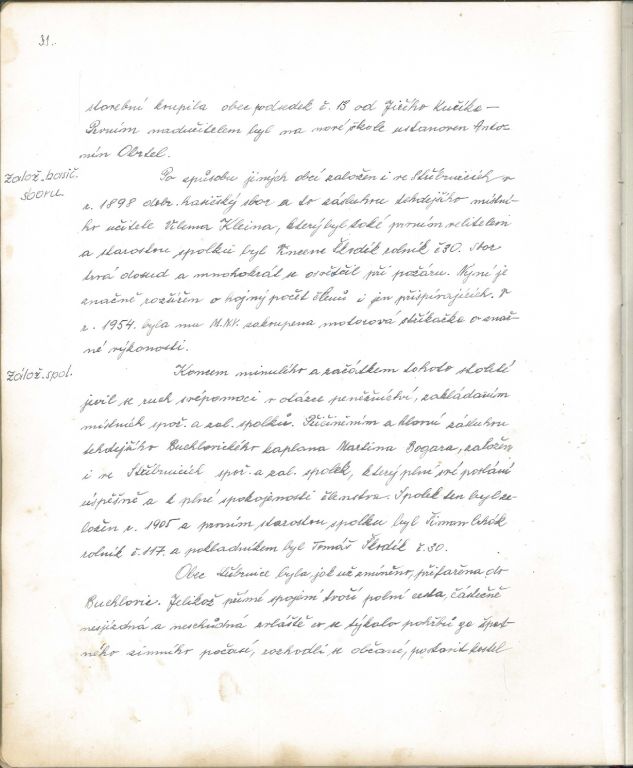 31.
stavební koupila obec podsedek č. 13 od Jiřího Kučíka –
Prvním nadučitelem byl na nové škole ustanoven Anto-
nín Obrtel.
Založ. hasič.
sboru.
Po způsobu jiných obcí založen i ve Stříbrnicích v
r. 1898 dobr. hasičský sbor a to zásluhou tehdejšího místní-
ho učitele Viléma Kleina, který byl také prvním velitelem
a starostou spolku byl Vincenc Škrdík rolník č 30. Sbor
trvá dosud a mnohokrát se osvědčil při požáru. Nyní je
značně rozšířen o hojný počet členů i jen přispívajících. V
r. 1954. byla mu M.N.V. zakoupena motorová stříkačka o znač-
né výkonosti.
Založ. spol.
Koncem minulého a začátkem tohoto století
jevil se ruch svépomoci v otázce peněžnictví, zakládáním
místních spoř. a zál. spolků. Přičiněním a hlavní zásluhou
tehdejšího Buchlovického kaplana Martina Bogara, založen
i ve Stříbrnicích spoř. a zál. spolek, který plní své poslání
úspěšně a k plné spokojenosti členstva. Spolek ten byl za-
ložen r. 1905 a prvním starostou spolku byl Šimon
rolník č. 117. a pokladníkem byl Tomáš Škrdík č. 30.
Obec Stříbrnice byla jak už zmíněno, přifařena do
Buchlovic. Jelikož přímé spojení tvoří polní cesta, částečně
nesjízdná a neschůdná zvláště co se týkalo pohřbů za špat-
ného zimního počasí, rozhodli se občané, postavit kostel